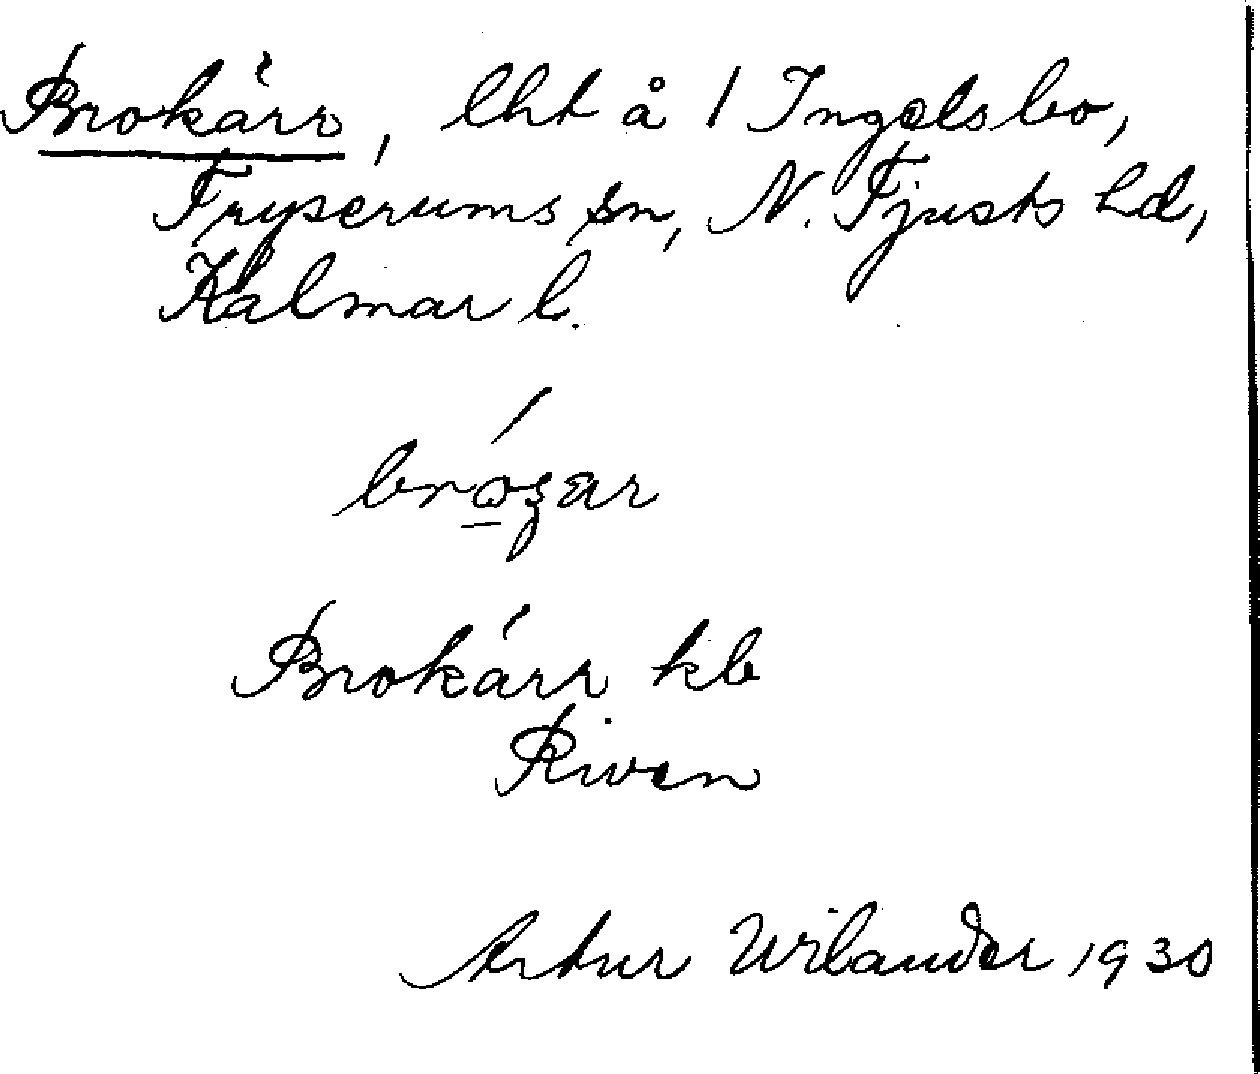 Brokärr, lht å 1 Ingelsbo,
Fryserums sn, N. Tjusts hd,
Kalmar l.
Brokärr kb
Riven
Artur Wilander 1930